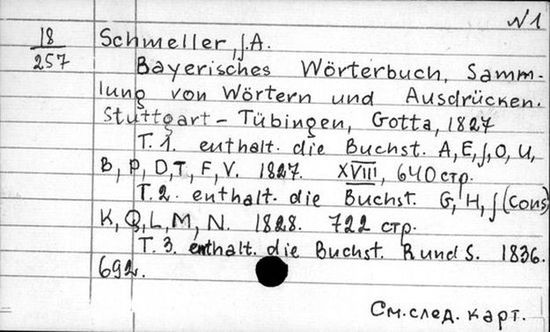 N 1
18
257
Schmeller, J. A.
Bayerisches Wörterbuch, Samm-
lung von Wörtern und Ausdrücken.
Stuttgart – Tübingen, Gotta, 1827
T. 1. enthalt. die Buchst. A, E, J, O, U,
B, P, D, T, F, V. 1827. XVIII, 640 стр.
T. 2. enthalt. die Buchst. G, H, J (cons)
K, Q, L, M, N. 1828. 722 стр.
T. 3. enthalt. die Buchst. R und S. 1836.
692.
См. след. карт.